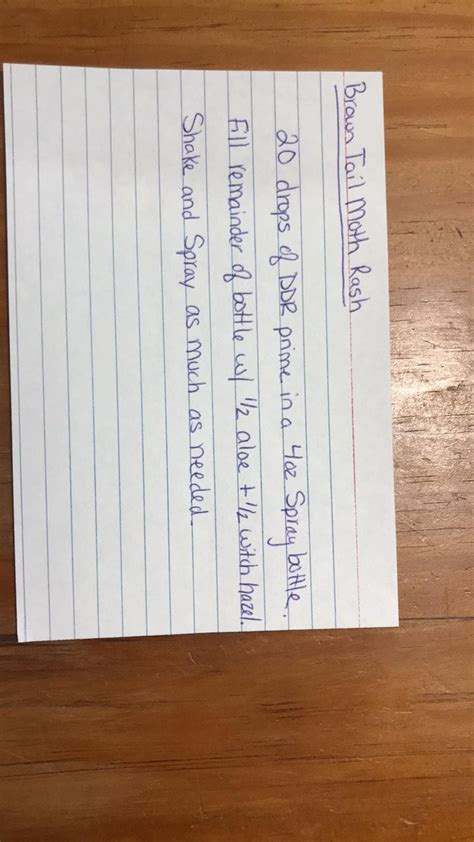 Brown Tail Moth Rash
20 drops of DDR prime in a 4oz Spray bottle.
Fill remainder of bottle w/ 1/2 aloe + 1/2 witch hazel.
Shake and Spray as much as needed.